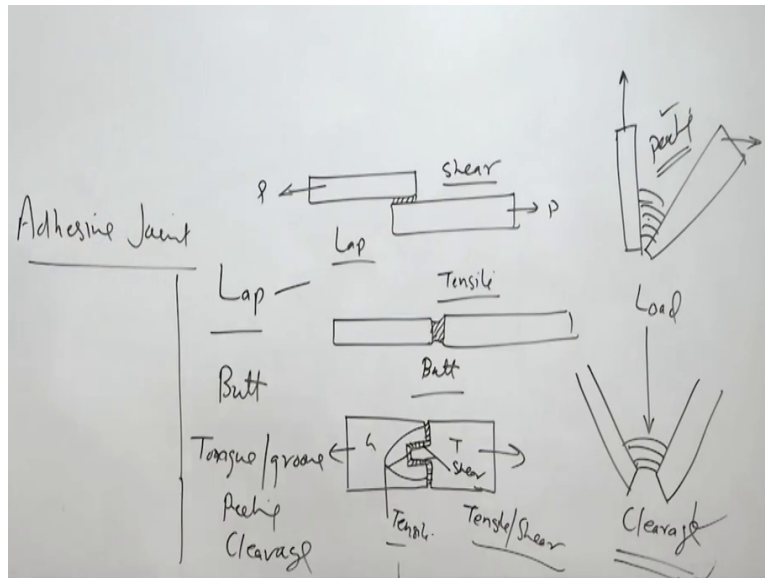 Adhesive Joint
Lap
Butt
Tongue/groove
Peeling
Cleavage
shear
P
P
Lap
Tensile
Butt
G
T
shear
Tensile
Tensile/Shear
Load
Cleavage